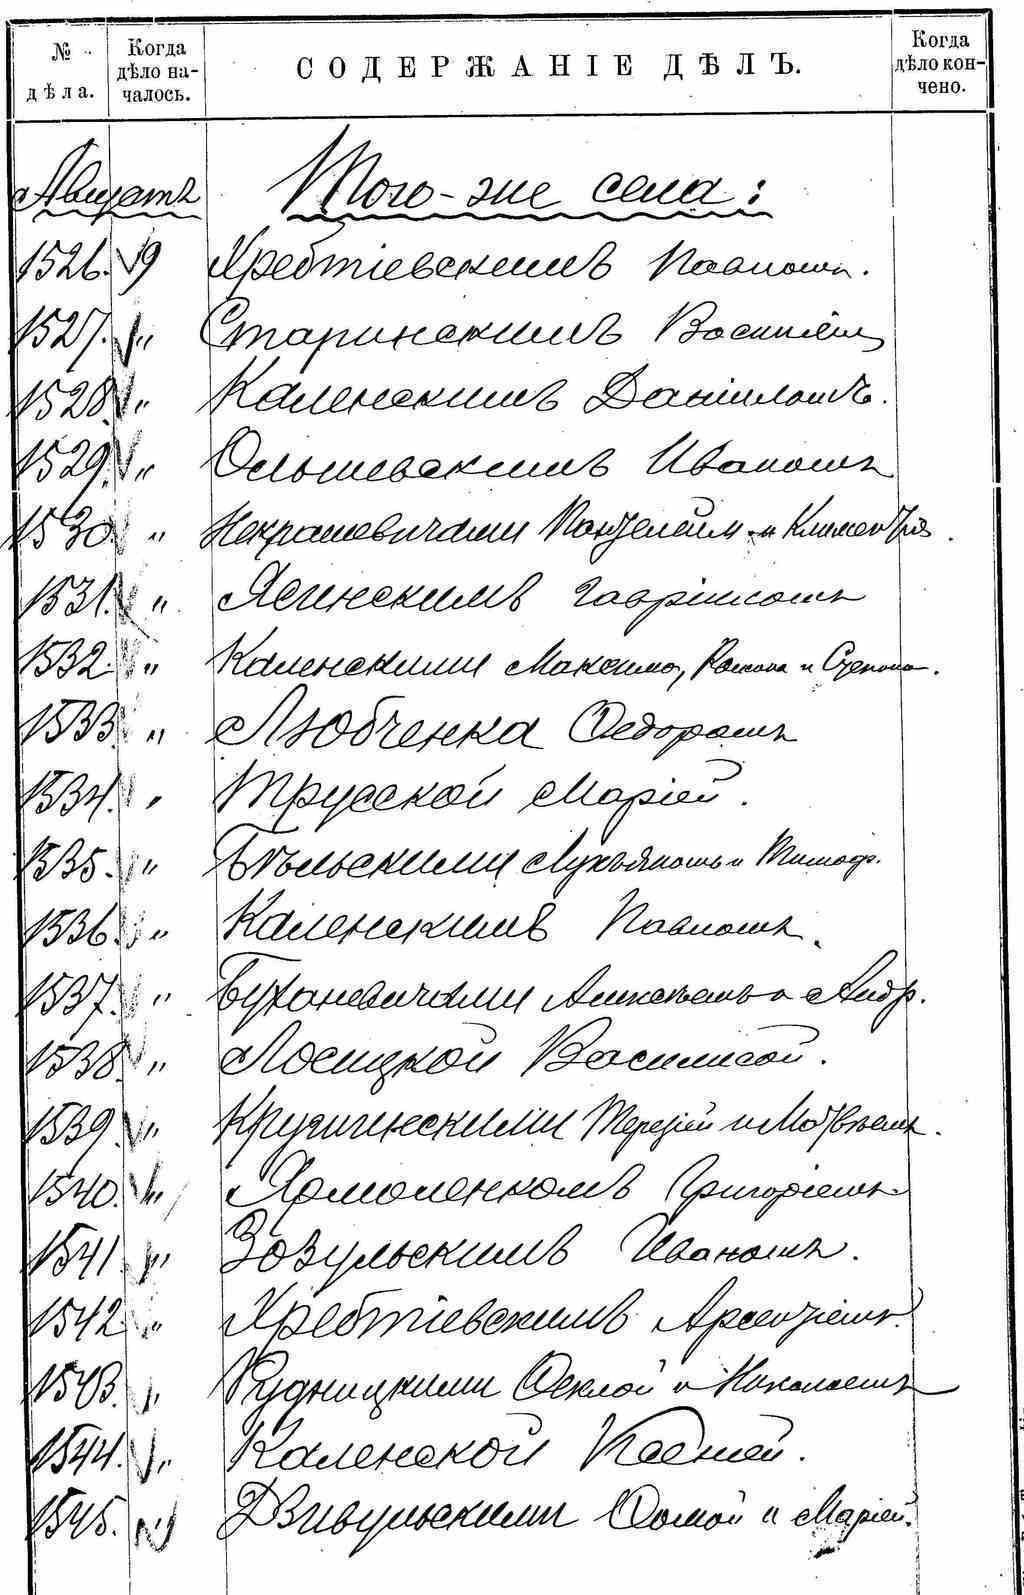 № дѣла.
Когда дѣло на-
чалось.
СОДЕРЖАНІЕ ДѢЛЪ.
Когда дѣло кон-
чено.
Августъ Того-же села:
1526. 19 Хребтіевскимъ Павломъ.
1527. " Старинскимъ Василіем
1528. " Каленскимъ Даніиломъ.
1529. " Ольшевскимъ Иваномъ
1530. " Некрашевичами Пантелейм. и Климентія.
1531. " Ясинскимъ Гавріиломъ
1532. " Каленскими Максимо, Романа и Степана.
1533. " Любченка Ѳедоромъ
1534. " Трусской Маріей.
1535. " Бѣльскими Лукьяномъ и Тимоф.
1536. " Каленскимъ Павломъ.
1537. " Бухановичами Алексѣемъ и Андр.
1538. " Лосицкой Василисой.
1539. " Кругическими Терезіей и Матвѣемъ.
1540. " Ярмоленкомъ Григоріемъ
1541. " Зозульскимъ Иваномъ.
1542. " Хребтіевскимъ Арсентіемъ.
1543. " Рудницкими Ѳеклой и Николаемъ
1544. " Каленской Ксеніей.
1545. " Дзивульскими Ѳомой и Маріей.